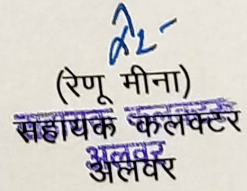 (रेणू मीना)
सहायक कलक्टर
अलवर
अलवर